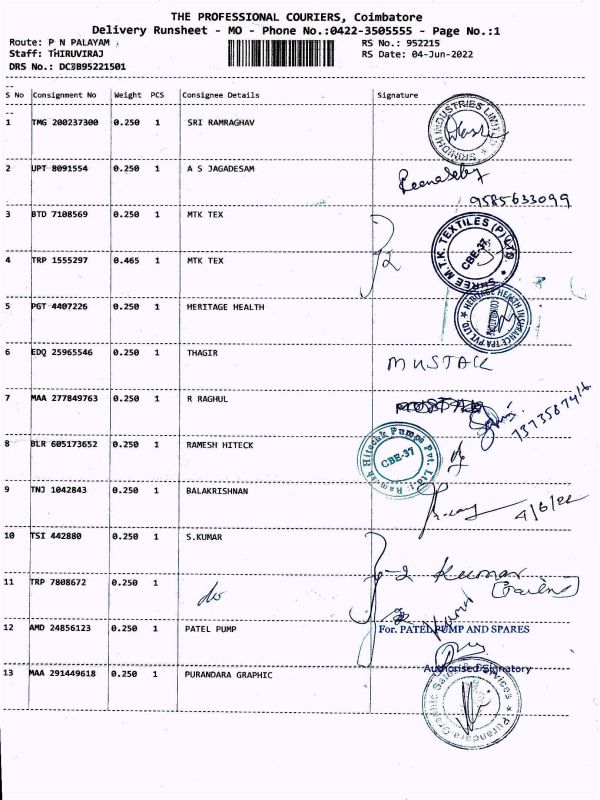 THE PROFESSIONAL COURIERS, Coimbatore
Delivery Runsheet - MO - Phone No.:0422-3505555 - Page No.:1
Route: P N PALAYAM RS No.: 952215
Staff: THIRUVIRAJ RS Date: 04-Jun-2022
DRS No.: DC3B95221501
S No Consignment No Weight PCS Consignee Details Signature
1 TMG 200237300 0.250 1 SRI RAMRAGHAV
SRINIDHI INDUSTRIES LIMITED
2 UPT 8091554 0.250 1 A S JAGADESAM
9585633099
3 BTD 7108569 0.250 1 MTK TEX
SHREE M.T.K. TEXTILES (P) LTD.
CBE-37
4 TRP 1555297 0.465 1 MTK TEX
2
5 PGT 4407226 0.250 1 MERITAGE HEALTH
HERITAGE HEALTH INSURANCE TPA PVT LTD.
6 EDQ 25965546 0.250 1 THAGIR
MUSTAK
7 MAA 277849763 0.250 1 R RAGHUL
8 BLR 605173652 0.250 1 RAMESH HITECK
Ramesh Hiteck Pumps Pvt. Ltd.
CBE-37
9 TNJ 1042843 0.250 1 BALAKRISHNAN
4/6/22
10 TSI 442880 0.250 1 S.KUMAR
Kumar
11 TRP 7808672 0.250 1
do
12 AMD 24856123 0.250 1 PATEL PUMP
For. PATEL PUMP AND SPARES
Authorised Signatory
13 MAA 291449618 0.250 1 PURANDARA GRAPHIC
Purandara Graphic Sales & Services